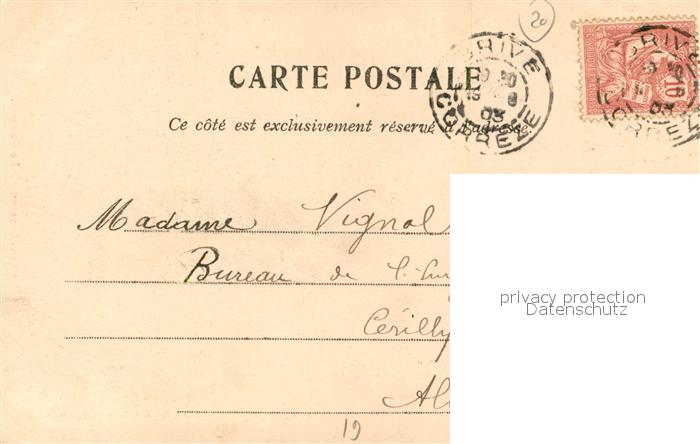 20
CARTE POSTALE
Ce côté est exclusivement réservé à l'adresse
BRIVE
03
CORRÈZE
10
BRIVE
03
CORRÈZE
Madame Vignol
Bureau de l'
Cérilly
Al
19
privacy protection
Datenschutz